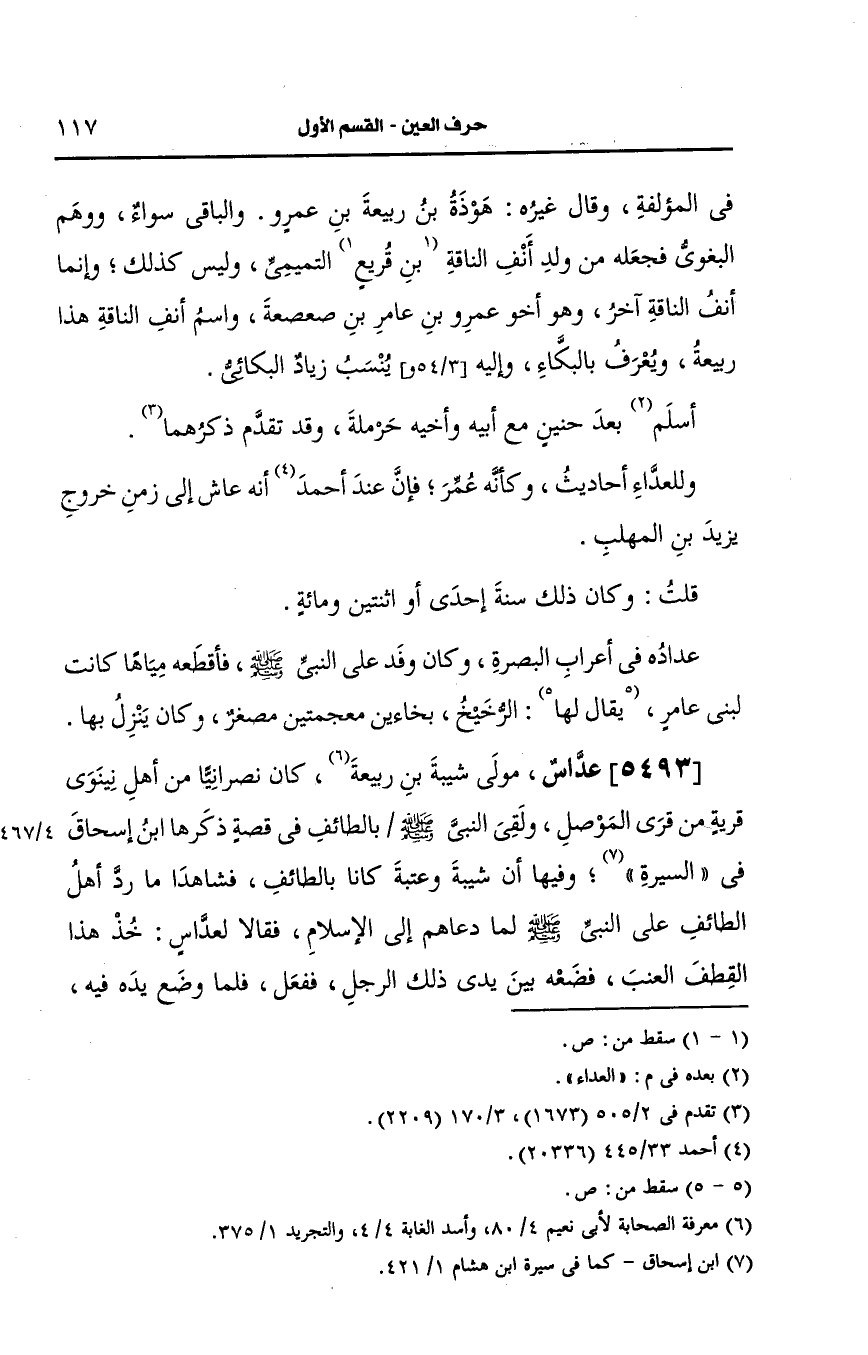 حرف العين - القسم الأول ١١٧
فى المؤلفةِ، وقال غيرُه: هَوْذَةُ بنُ ربيعةَ بنِ عمرٍو. والباقى سواءٌ، ووهَم
البغوىُّ فجعَله من ولدِ أَنْفِ الناقةِ (١بنِ قُريعٍ١) التميمِىِّ، وليس كذلك؛ وإنما
أنفُ الناقةِ آخرُ، وهو أخو عمرِو بنِ عامرِ بنِ صعصعةَ، واسمُ أنفِ الناقةِ هذا
ربيعةُ، ويُعْرَفُ بالبكَّاءِ، وإليه [٥٤/٣و] يُنْسَبُ زيادٌ البكائِىُّ.
أسلَم(٢) بعدَ حنينٍ مع أبيه وأخيه حَرْملةَ، وقد تقدَّم ذكرُهما(٣).
وللعدَّاءِ أحاديثُ، وكأنَّه عُمِّرَ؛ فإنَّ عندَ أحمدَ(٤) أنه عاش إلى زمنِ خروجِ
يزيدَ بنِ المهلبِ.
قلتُ: وكان ذلك سنةَ إحدَى أو اثنتين ومائةٍ.
عدادُه فى أعرابِ البصرةِ، وكان وفَد على النبىِّ ﷺ، فأقطَعه مِيَاهًا كانت
لبنى عامرٍ، (٥يقال لها٥): الرُّخَيْخُ، بخاءين معجمتين مصغرٌ، وكان يَنْزِلُ بها.
[٥٤٩٣] عدَّاسٌ، مولَى شيبةَ بنِ ربيعةَ(٦)، كان نصرانِيًّا من أهلِ نِينَوَى
قريةٍ من قرَى المَوْصلِ، ولَقِىَ النبىَّ ﷺ / بالطائفِ فى قصةٍ ذكَرها ابنُ إسحاقَ ٤٦٧/٤
فى «السيرةِ»(٧)؛ وفيها أن شيبةَ وعتبةَ كانا بالطائفِ، فشاهدَا ما ردَّ أهلُ
الطائفِ على النبىِّ ﷺ لما دعاهم إلى الإسلامِ، فقالا لعدَّاسٍ: خُذْ هذا
القِطفَ العنبَ، فضَعْه بينَ يدى ذلك الرجلِ، ففعَل، فلما وضَع يدَه فيه،
(١ - ١) سقط من: ص.
(٢) بعده فى م: «العداء».
(٣) تقدم فى ٥٠٥/٢ (١٦٧٣)، ١٧٠/٣ (٢٢٠٩).
(٤) أحمد ٤٤٥/٣٣ (٢٠٣٣٦).
(٥ - ٥) سقط من: ص.
(٦) معرفة الصحابة لأبى نعيم ٤/ ٨٠، وأسد الغابة ٤/ ٤، والتجريد ١/ ٣٧٥.
(٧) ابن إسحاق - كما فى سيرة ابن هشام ١/ ٤٢١.